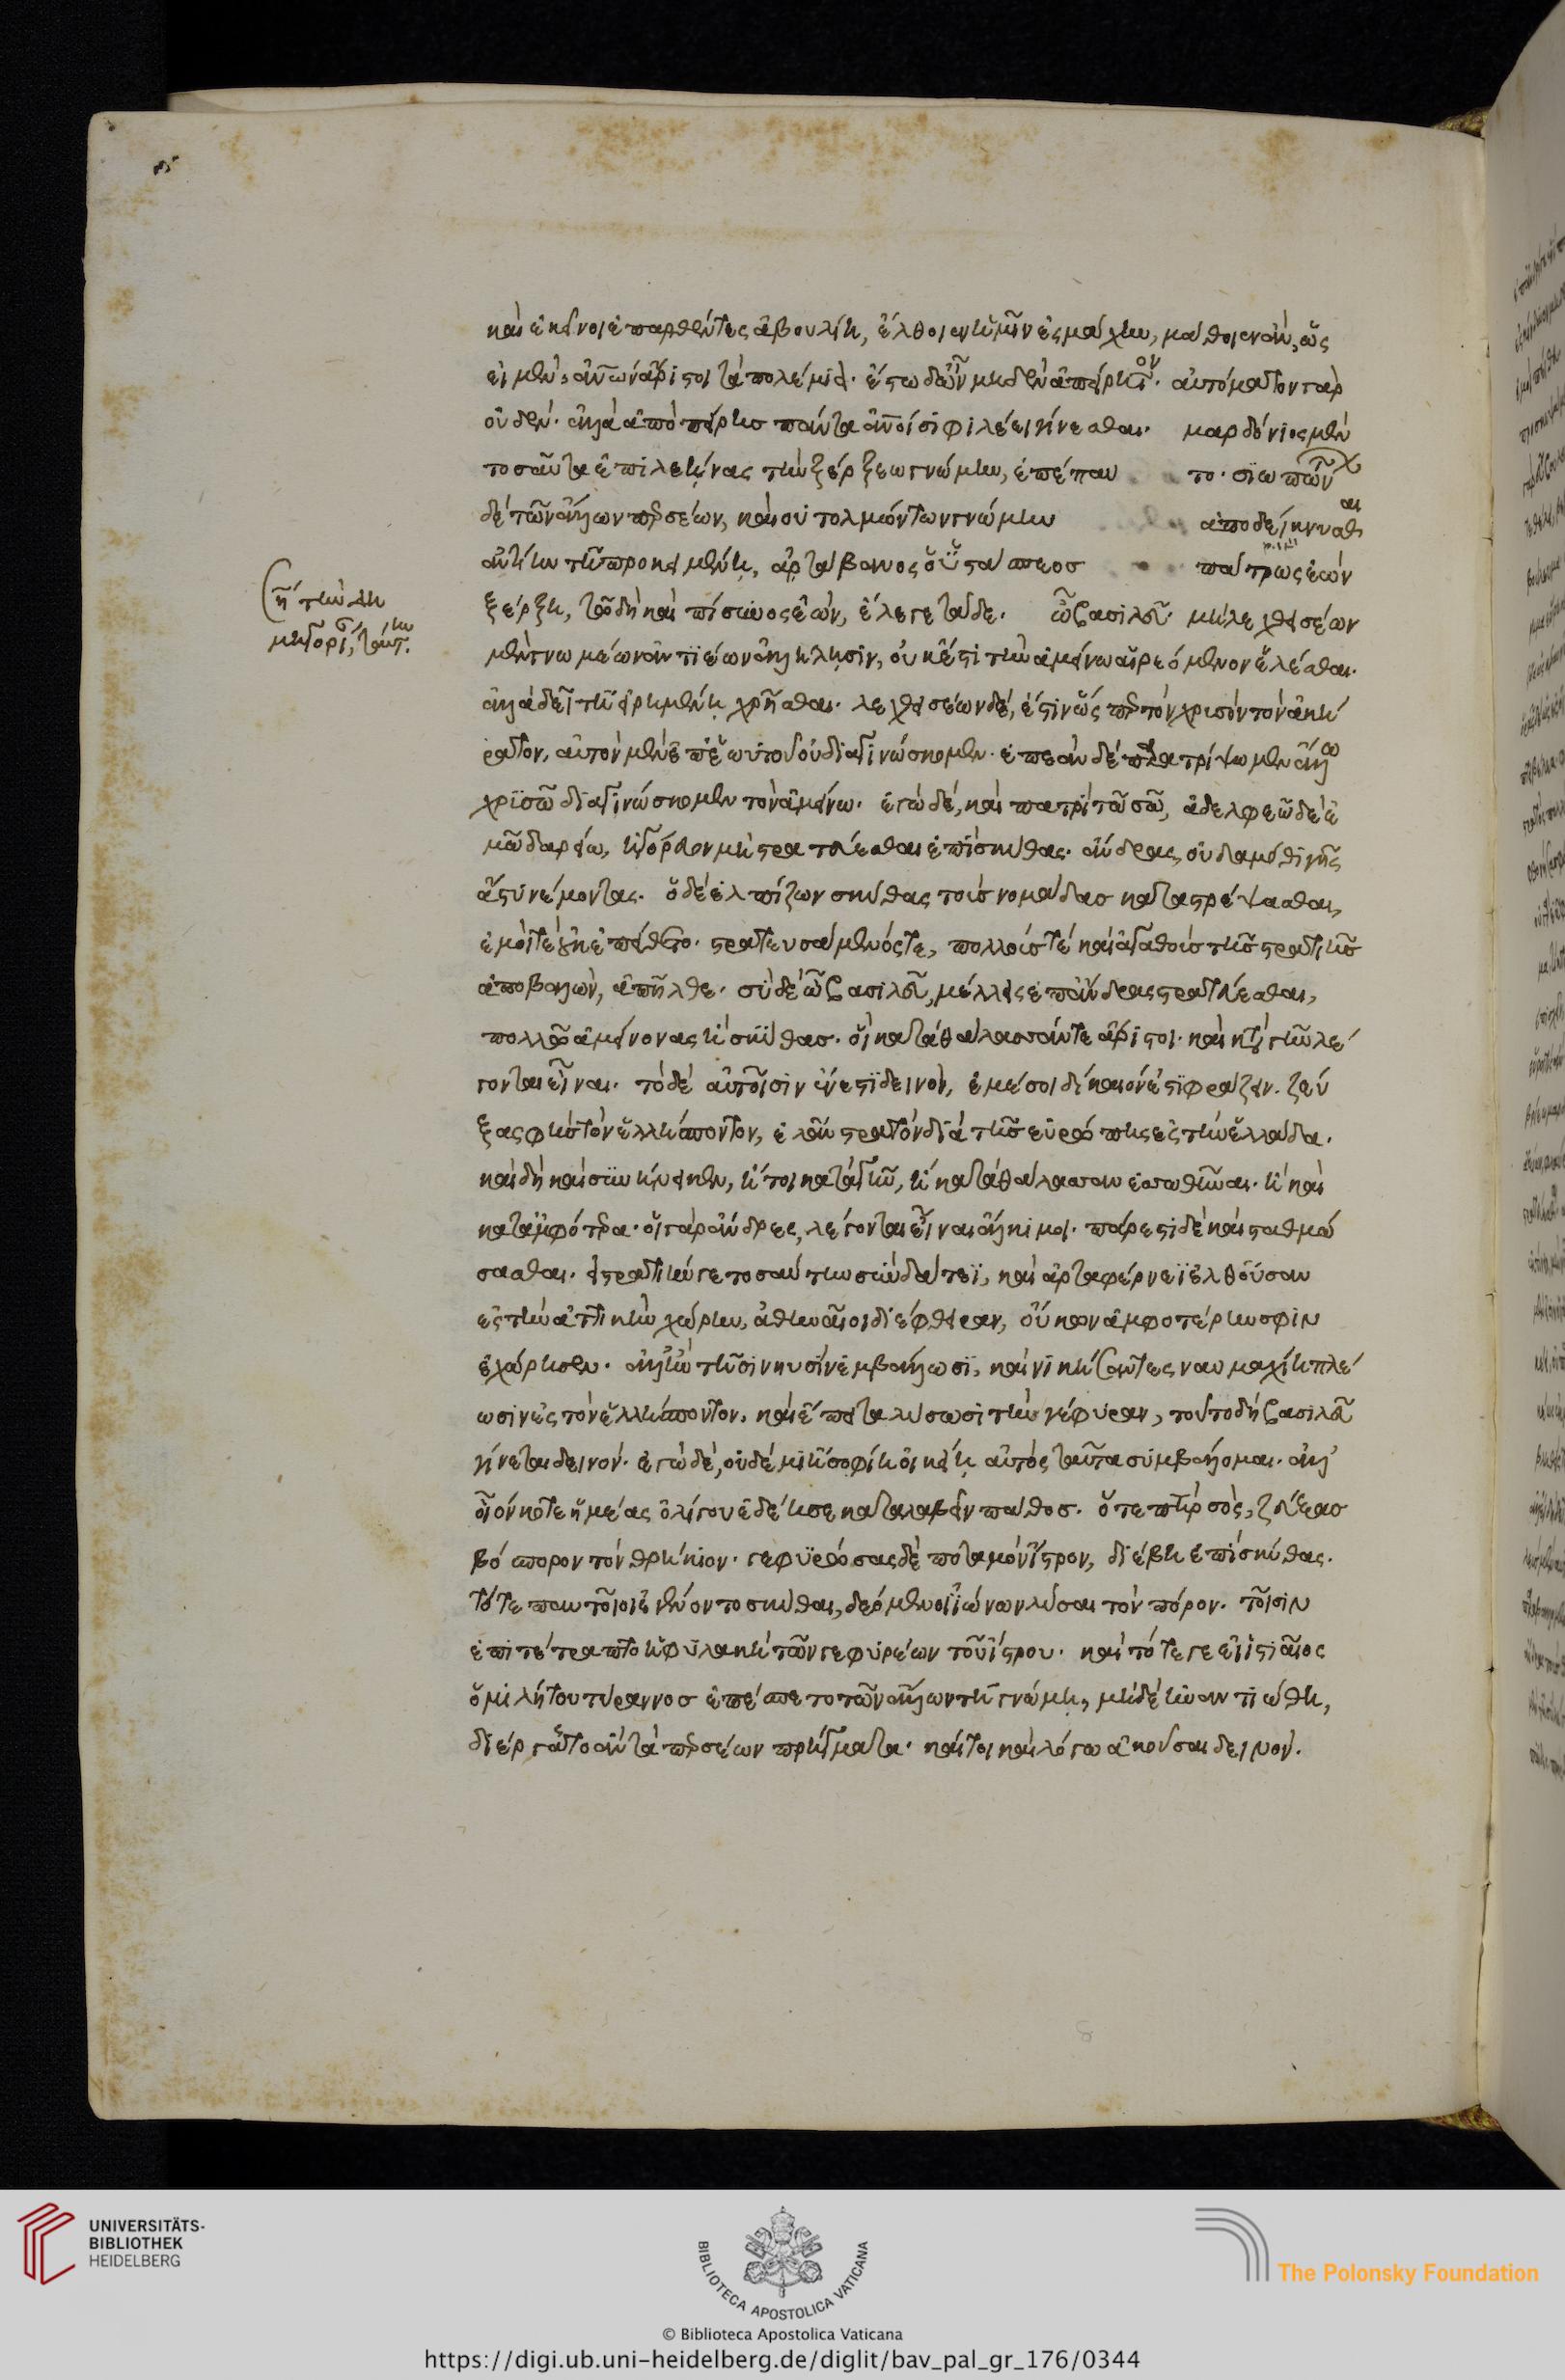 καὶ ἐκεῖνοι ἐπαρθέντες ἀβουλίη, ἔλθοιεν ἡμῖν ἐς μάχην, μάθοιεν ἂν, ὥς
εἰμεν ἀνων ἄριστοι τὰ πολέμια. ἔστω δ' ὦν μηδὲν ἀπείρητον. αὐτόματον γὰρ
οὐδέν. ἀλλὰ ἀπὸ πείρης πάντα ἀνοισι φιλέει γίνεσθαι. μαρδόνιος μὲν
τοσαῦτα ἐπιλεήνας τὴν ξέρξεω γνώμην, ἐπέπαυ το. σιωπών
δὲ τῶν ἄλλων περσέων, καὶ οὐ τολμώντων γνώμην ἀποδείκνυσθαι
ἀντίην τῆ προκειμένη, ἀρτάβανος ὁ ὑστάσπεος πάτρως ἐὼν
ξέρξη, τῶ δὴ καὶ πίσυνος ἐὼν, ἔλεγε τάδε. ὦ βασιλεῦ. μὴ λεχθεισέων
μὲν γνωμέων ἀντιέων ἀλλήλησιν, οὐκ ἔστι τὴν ἀμείνω αἱρεόμενον ἑλέσθαι.
ἀλλὰ δεῖ τῆ εἰρημένη χρῆσθαι. λεχθεισέων δὲ, ἔστιν ὥσπερ τὸν χρυσὸν τὸν ἀκή
ρατον, αὐτὸν μὲν ἐπ' ἑωυτοῦ οὐ διαγινώσκομεν. ἐπεὰν δὲ παρατρίψωμεν ἄλλω
χρυσῶ διαγινώσκομεν τὸν ἀμείνω. ἐγὼ δὲ, καὶ πατρὶ τῶ σῶ, ἀδελφεῶ δὲ ἐ
μῶ δαρείω, ἠγόρευον μὴ στρατεύεσθαι ἐπὶ σκύθας. ἄνδρας οὐδαμόθι γῆς
ἄστυ νέμοντας. ὁ δὲ ἐλπίζων σκύθας τοὺς νομάδας καταστρέψασθαι,
ἐμοί τε οὐκ ἐπείθετο. στρατευσάμενός τε, πολλούς τε καὶ ἀγαθοὺς τῆς στρατιῆς
ἀποβαλὼν, ἀπῆλθε. σὺ δὲ ὦ βασιλεῦ, μέλλεις ἐπ' ἄνδρας στρατεύεσθαι,
πολλὸν ἀμείνονας ἢ σκύθας. οἳ κατὰ θάλασσάν τε ἄριστοι. καὶ κατὰ γῆν λέ
γονται εἶναι. τὸ δὲ αὐτοῖσιν ἔνεστι δεινὸν, ἐμέ σοι δίκαιόν ἐστι φράζειν. ζεύ
ξας φὴς τὸν ἑλλήσποντον, ἐλᾶν στρατὸν διὰ τῆς εὐρώπης ἐς τὴν ἑλλάδα.
καὶ δὴ καὶ συνήνεικεν, ἤτοι κατὰ γῆν, ἢ κατὰ θάλασσαν ἑσσωθῆναι. ἢ καὶ
κατ' ἀμφότερα. οἱ γὰρ ἄνδρες, λέγονται εἶναι ἄλκιμοι. πάρεστι δὲ καὶ σταθμώ
σασθαι. εἰ στρατιήν γε τοσαύτην σὺν δάτεϊ, καὶ ἀρταφέρνεϊ ἐλθοῦσαν
ἐς τὴν ἀττικὴν χώρην, ἀθηναῖοι διέφθειραν, οὔκων ἀμφοτέρη σφιν
ἐχώρησεν. ἀλλ' ἢν τῆσι νηυσὶν ἐμβάλωσι, καὶ νικήσαντες ναυμαχίη πλέ
ωσιν ἐς τὸν ἑλλήσποντον, καὶ ἔπειτα λύσωσι τὴν γέφυραν, τοῦτο δὴ βασιλεῦ
γίνεται δεινόν. ἐγὼ δὲ, οὐδεμιῆ σοφίη οἰκείη αὐτὸς ταῦτα συμβάλλομαι. ἀλλ'
οἷόν κοτε ἡμέας ὀλίγου ἐδέησε καταλαβεῖν πάθος. ὅτε πατὴρ σὸς, ζεύξας
βόσπορον τὸν θρηίκιον. γεφυρώσας δὲ ποταμὸν ἴστρον, διέβη ἐπὶ σκύθας.
τότε παντοῖοι ἐγένοντο σκύθαι, δεόμενοι ἰώνων λῦσαι τὸν πόρον. τοῖσιν
ἐπιτέτραπτο ἡ φυλακὴ τῶν γεφυρέων τοῦ ἴστρου. καὶ τότε γε εἰ ἱστιαῖος
ὁ μιλήτου τύραννος ἐπέσπετο τῶν ἄλλων τῆ γνώμη, μηδὲ ἠναντιώθη,
διέργαστο ἂν τὰ περσέων πρήγματα. καίτοι καὶ λόγω ἀκοῦσαι δεινόν.
UNIVERSITÄTS-
BIBLIOTHEK
HEIDELBERG
BIBLIOTECA APOSTOLICA VATICANA
The Polonsky Foundation
© Biblioteca Apostolica Vaticana
https://digi.ub.uni-heidelberg.de/diglit/bav_pal_gr_176/0344